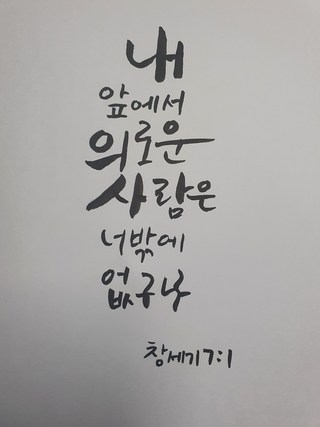 내
앞에서
의로운
사람은
너밖에
없구나
창세기7:1